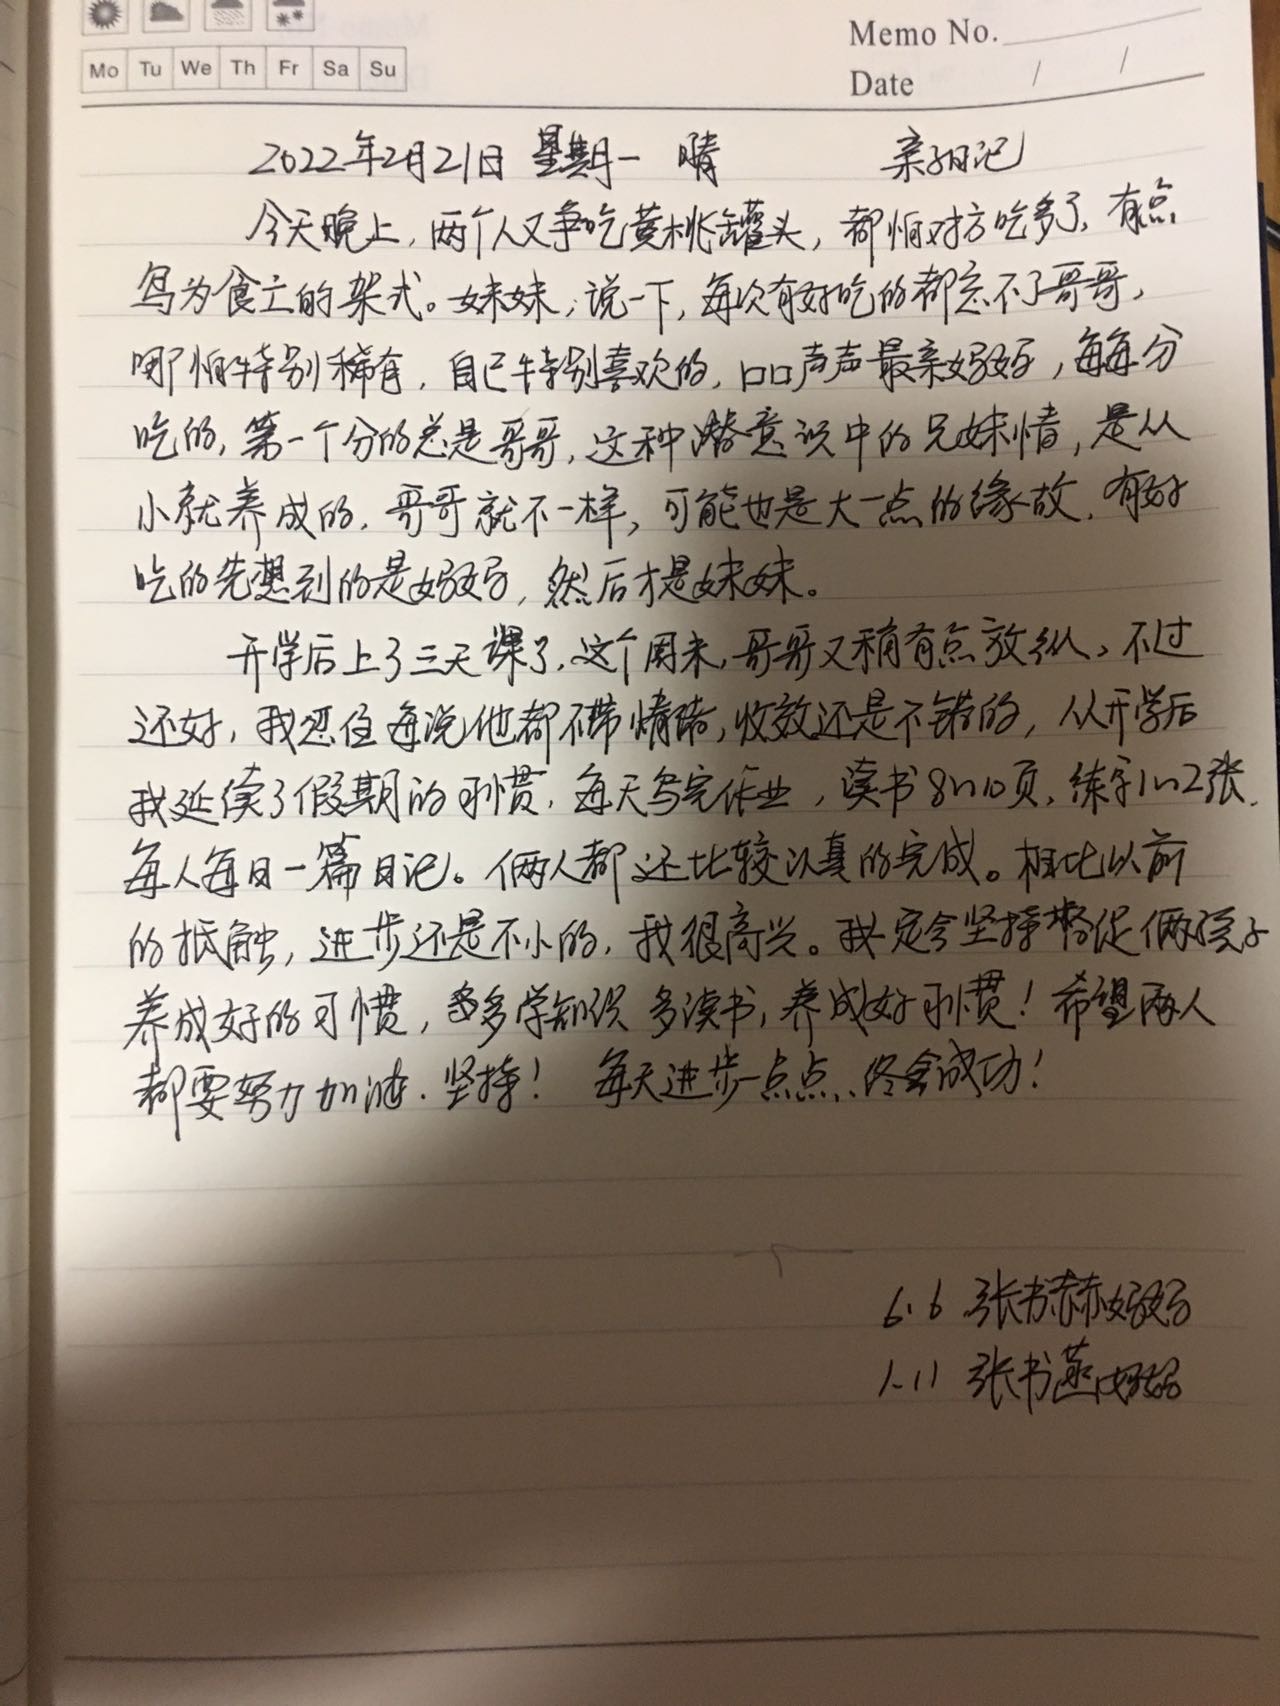 Memo No.
Mo Tu We Th Fr Sa Su
Date / /
2022年2月21日 星期一 晴 亲子日记
今天晚上，两个人又争吃黄桃罐头，都怕对方吃多了，有点
鸟为食亡的架式。妹妹，说一下，每次有好吃的都忘不了哥哥，
哪怕特别稀有，自己特别喜欢的，口口声声最亲妈妈，每每分
吃的，第一个分的总是哥哥，这种潜意识中的兄妹情，是从
小就养成的，哥哥就不一样，可能也是大一点的缘故，有好
吃的先想到的是妈妈，然后才是妹妹。
开学后上了三天课了，这个周末，哥哥又稍有点放纵，不过
还好，我忍住每说他都不带情绪，收效还是不错的，从开学后
我延续了假期的习惯，每天写完作业，读书8~10页，练字1~2张，
每人每日一篇日记。俩人都还比较认真的完成。相比以前
的抵触，进步还是不小的，我很高兴。我定会坚持督促俩孩子
养成好的习惯，多多学知识 多读书，养成好习惯！希望两人
都要努力加油，坚持！ 每天进步一点点，终会成功！
6.6 张书赫妈妈
1.11 张书燕妈妈